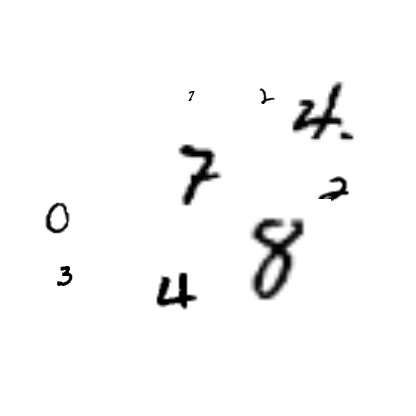 7 2 4.
7 2
0 8
3 4